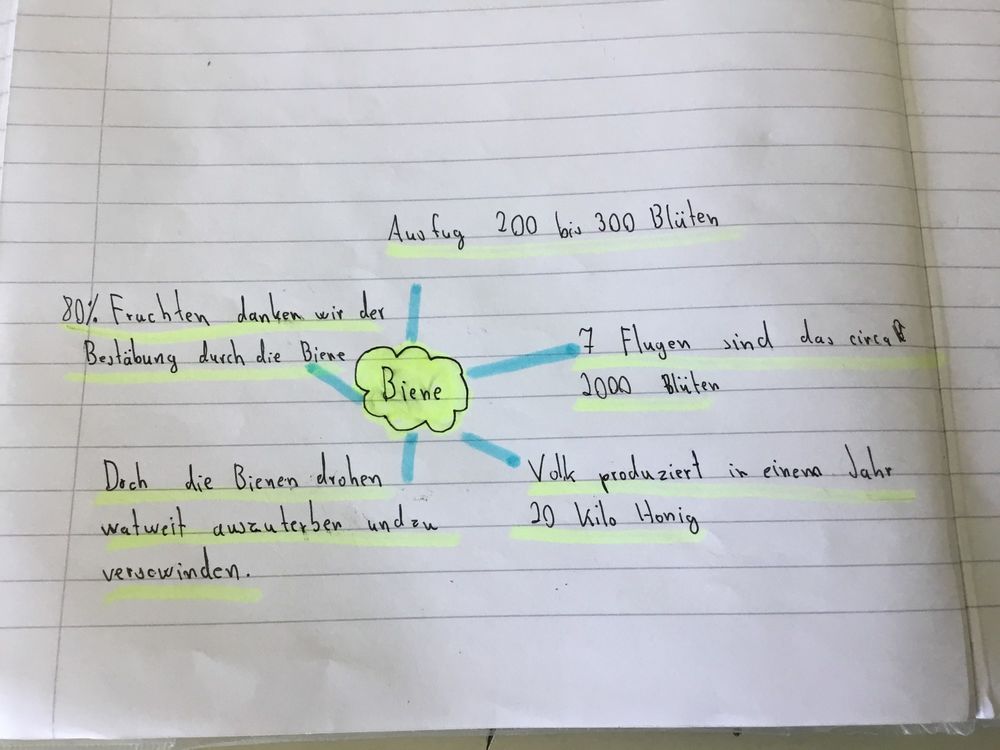 Ausfug 200 bis 300 Blüten
80% Fruchten danken wir der
Bestäbung durch die Biene
7 Flugen sind das circa
2000 Blüten
Biene
Doch die Bienen drohen
watweit auszuterben und zu
versowinden.
Volk produziert in einem Jahr
20 Kilo Honig